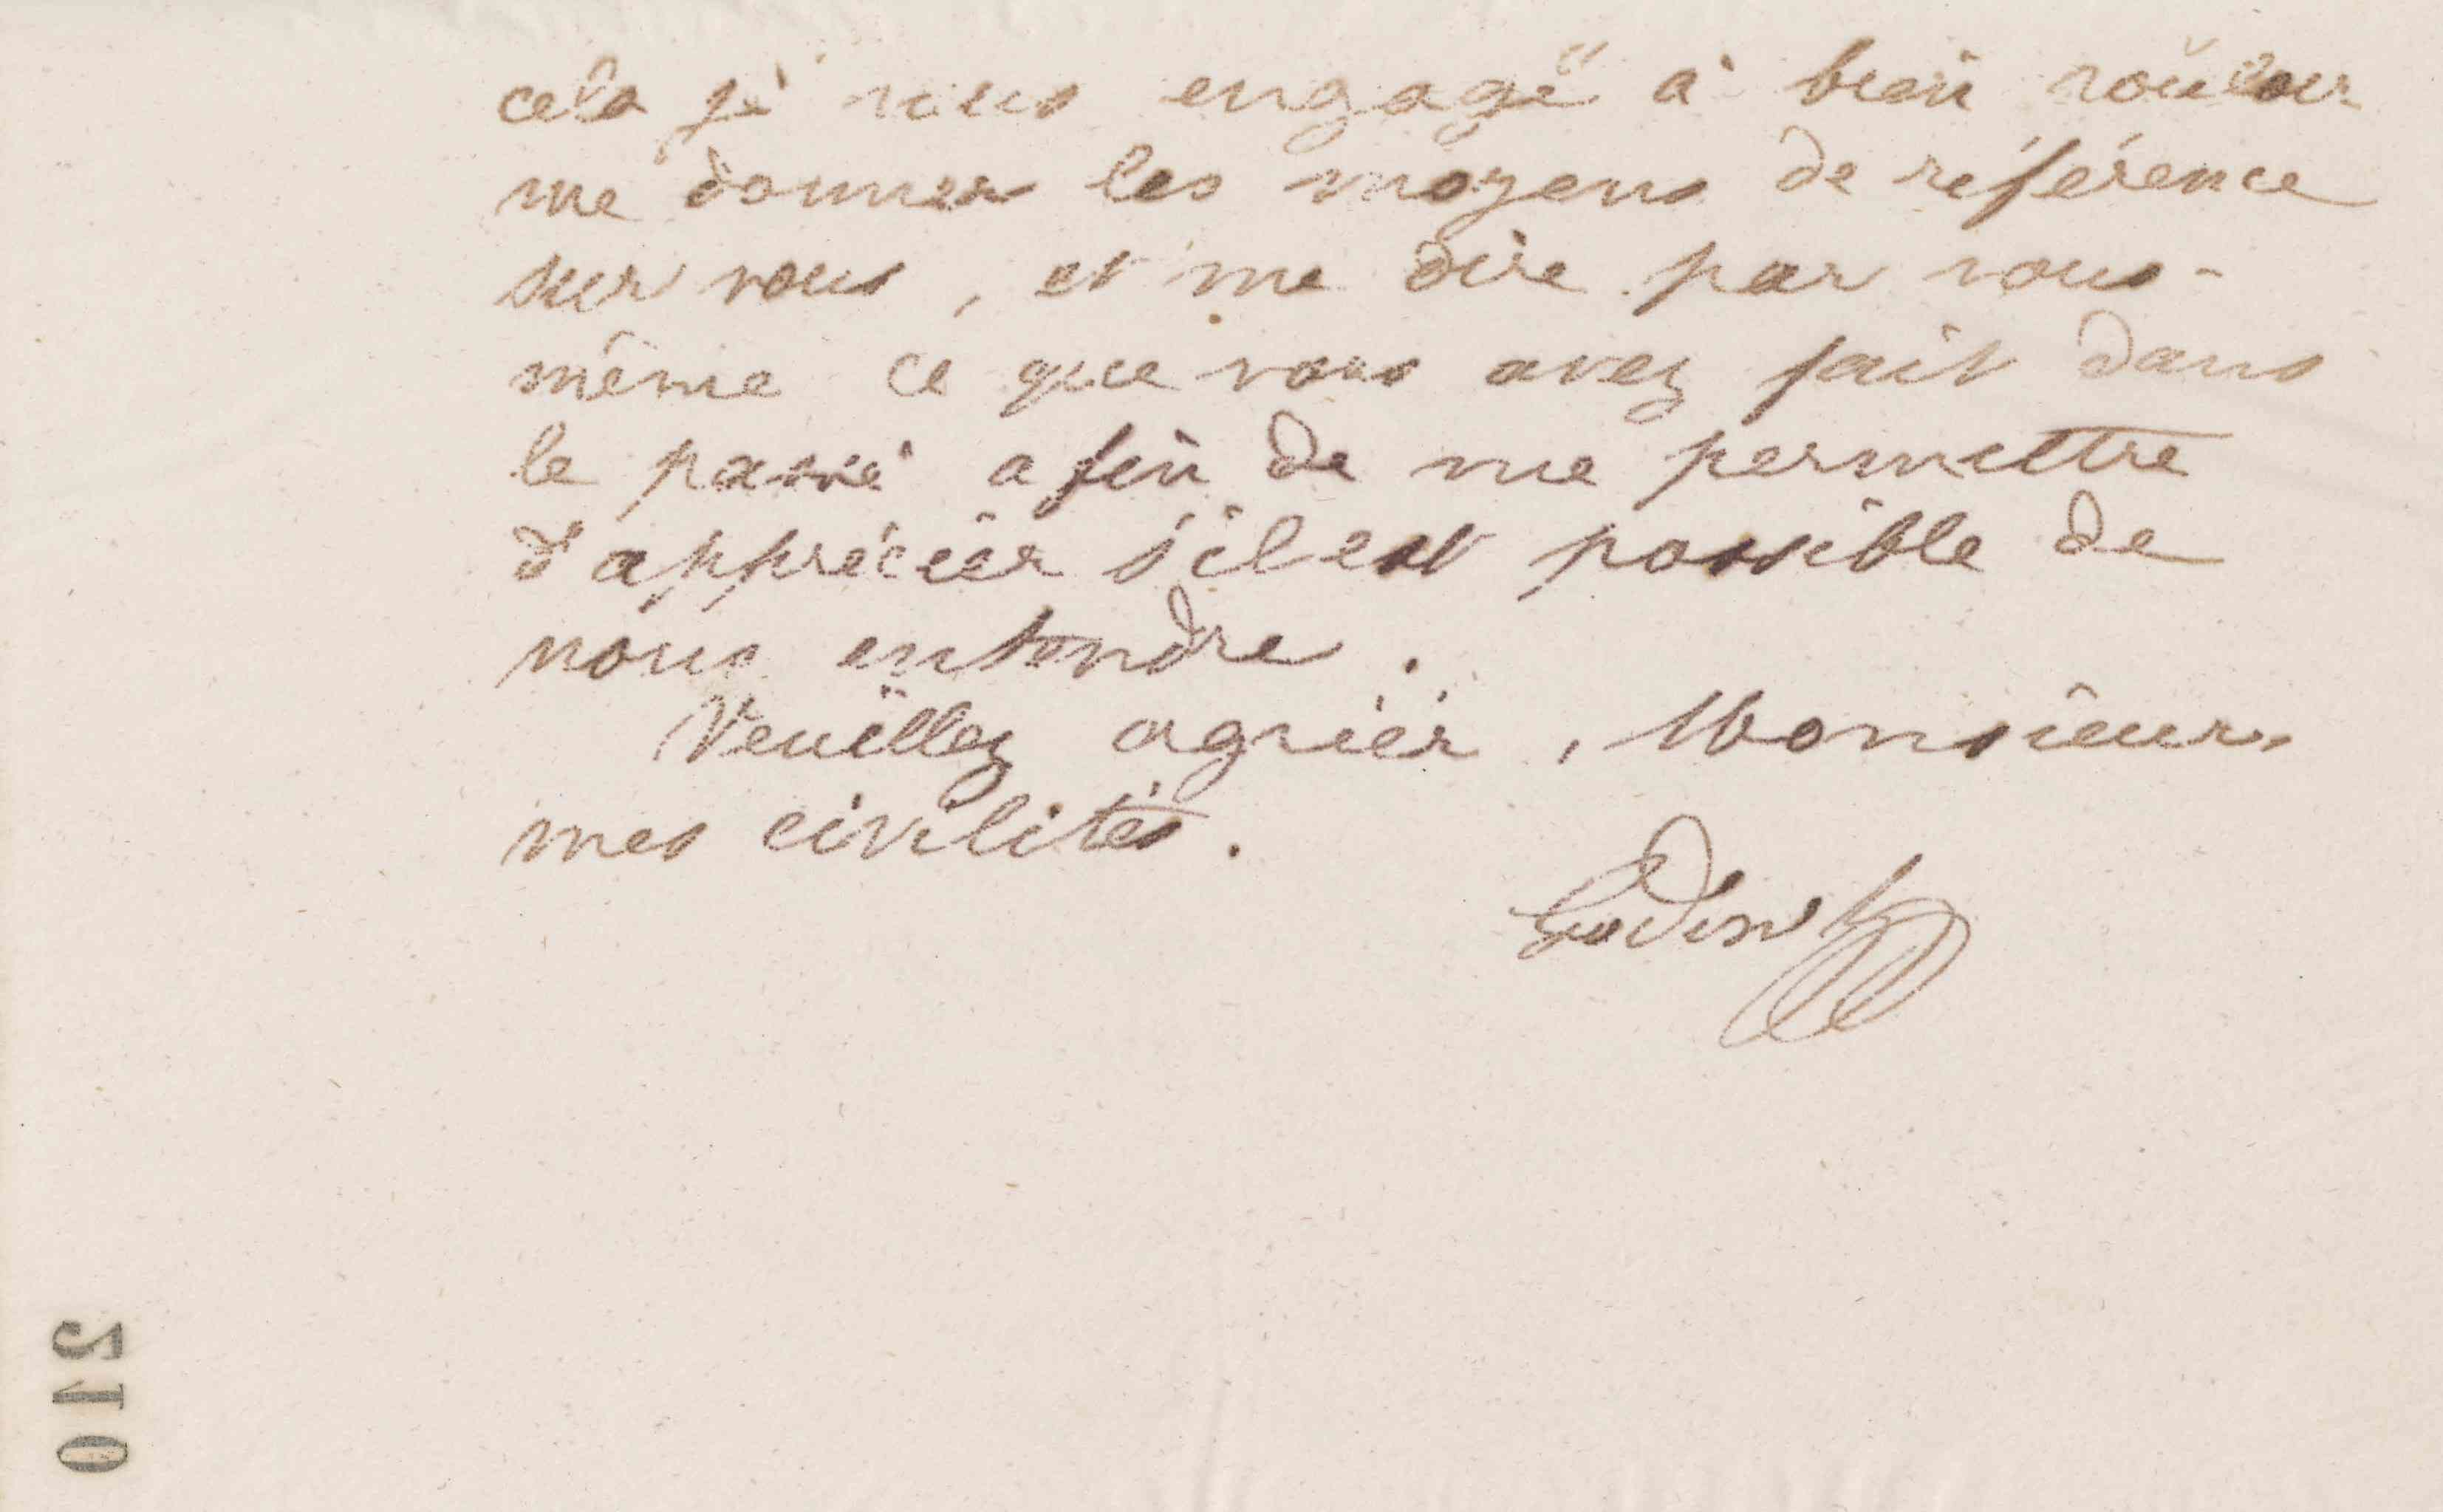 cela je vous engage à bien vouloir
me donner les moyens de référence
sur vous, et me dire par vous-
même ce que vous avez fait dans
le passé afin de me permettre
d'apprécier s'il est possible de
nous entendre.
Veuillez agréer, Monsieur,
mes civilités.
Godin
210